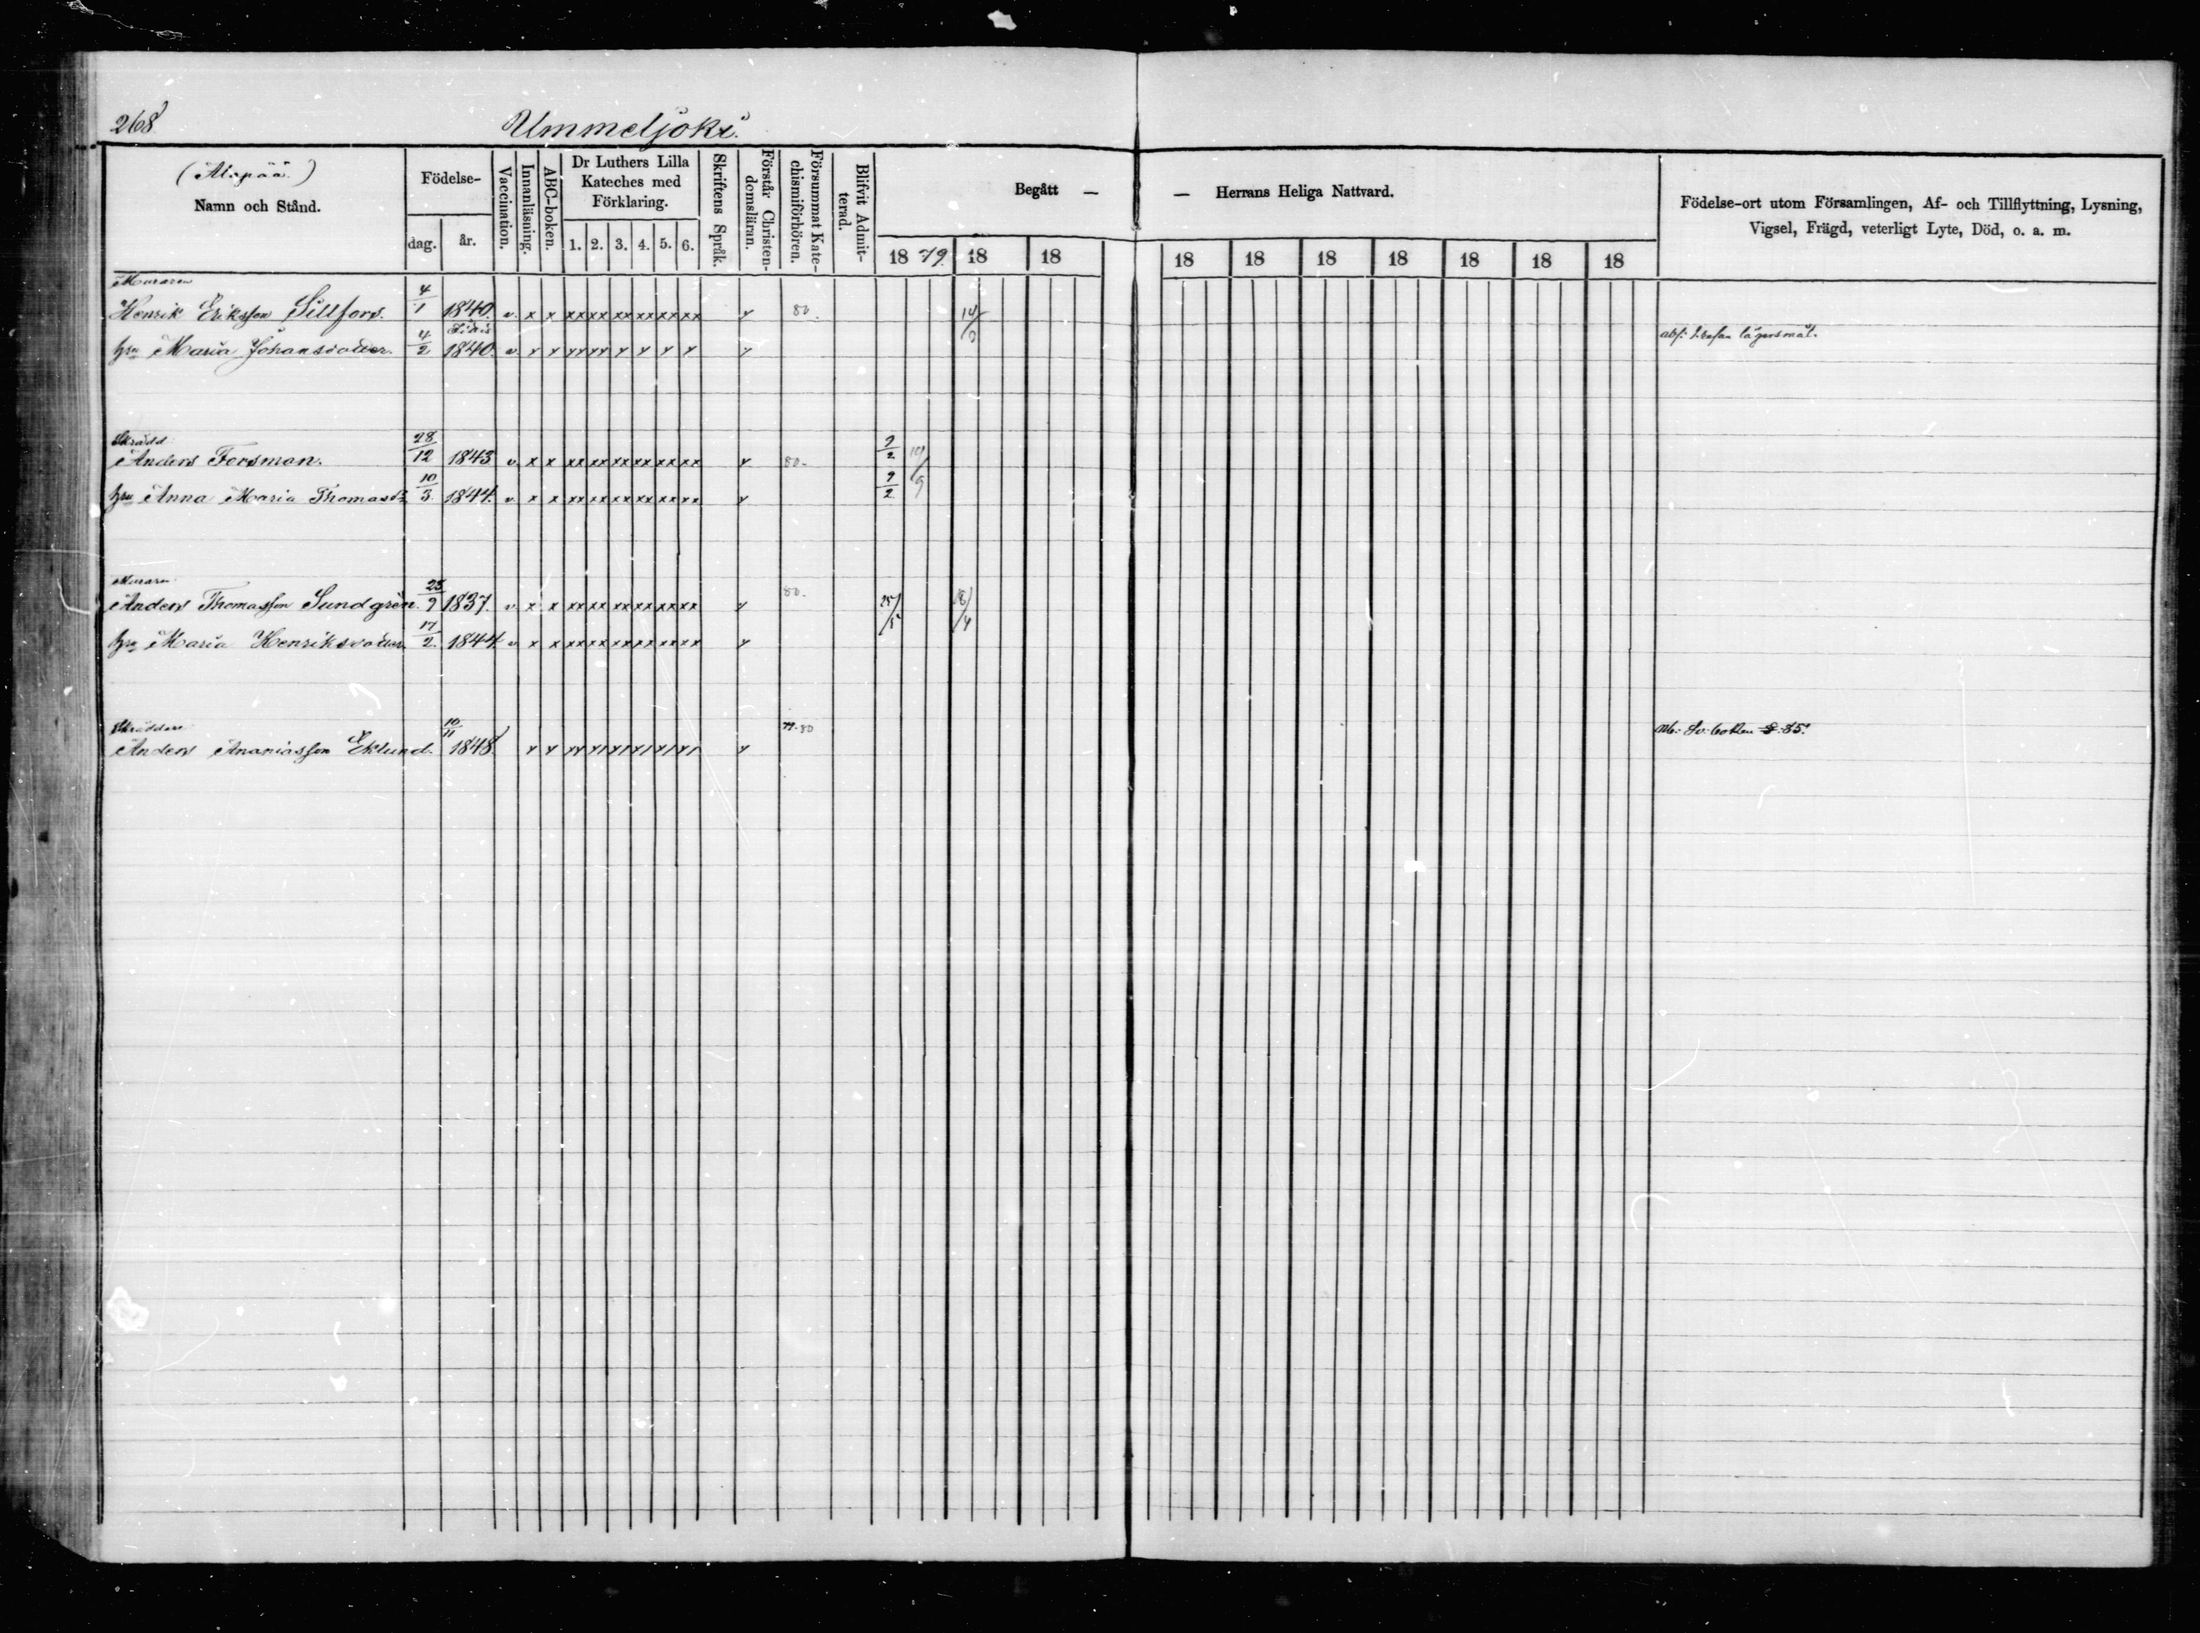 268
Ummeljoki.
(Alapää.)
Namn och Stånd.
Födelse-
dag. år.
Vaccination.
Innanläsning.
ABC-boken.
Dr Luthers Lilla
Kateches med
Förklaring.
1. 2. 3. 4. 5. 6.
Skriftens Språk.
Förstår Christen-
domsläran.
Försummat Kate-
chismiförhören.
Blifvit Admit-
terad.
Begått — — Herrans Heliga Nattvard.
18 79. 18 18 18 18 18 18 18 18 18
Födelse-ort utom Församlingen, Af- och Tillflyttning, Lysning,
Vigsel, Frägd, veterligt Lyte, Död, o. a. m.
Muraren
Henrik Eriksson Sillfors. 4/1 1840. v. x x xx xx xx xx xx xx x 80.
hru Maria Johansdotter. 4/2 1840. v. x x xx xx x x x x x lägersmål.
Skrädd.
Anders Forsman. 28/12 1843 v. x x xx xx xx xx xx xx x 80. 9/2
hru Anna Maria Thomasd:r 10/3 1844. v. x x xx xx xx xx xx xx x 9/2
Muraren
Anders Thomasson Sundgrén. 25/9 1837. v. x x xx xx xx xx xx xx x 80. 25/5 18/4
hru Maria Henriksdotter. 17/2 1844 v. x x xx xx xx xx xx xx x
Skräddare
Anders Ananiasson Eklund. 10/11 1848. x x xx x/ x/ x/ x/ x/ x 79. 80